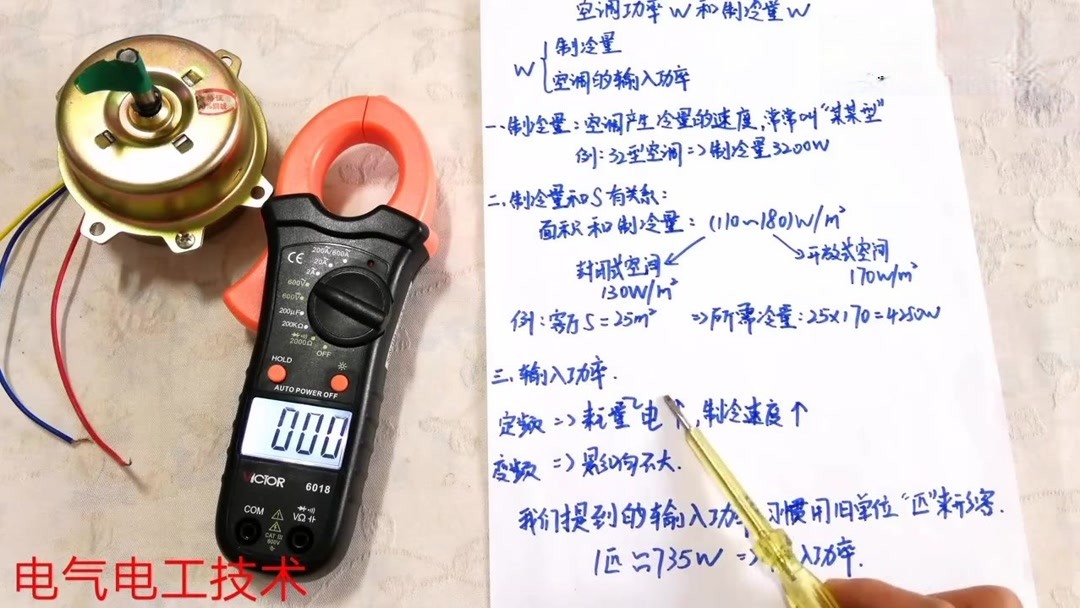 空调功率W和制冷量W
W
制冷量
空调的输入功率
一、制冷量:空调产生冷量的速度,常常叫"某某型"
例:32型空调=>制冷量3200W
二、制冷量和S有关系:
面积和制冷量: (110~180)W/m²
封闭式空间
130W/m²
开放式空间
170W/m²
例:客厅S=25m² =>所需冷量:25x170=4250W
三、输入功率.
定频 => 耗电量↑,制冷速度↑
变频 => 影响不大.
我们提到的输入功 习惯用旧单位"匹"来形容.
1匹≈735W => 入功率.
CE
200A/600A
20A
2A
600V
600V
200μF
200KΩ
2000Ω
OFF
HOLD
AUTO POWER OFF
000
VICTOR
6018
COM
VΩ
CAT III
600V
电气电工技术